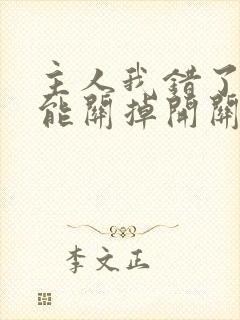 主人我错了
能關掉開關
李文正